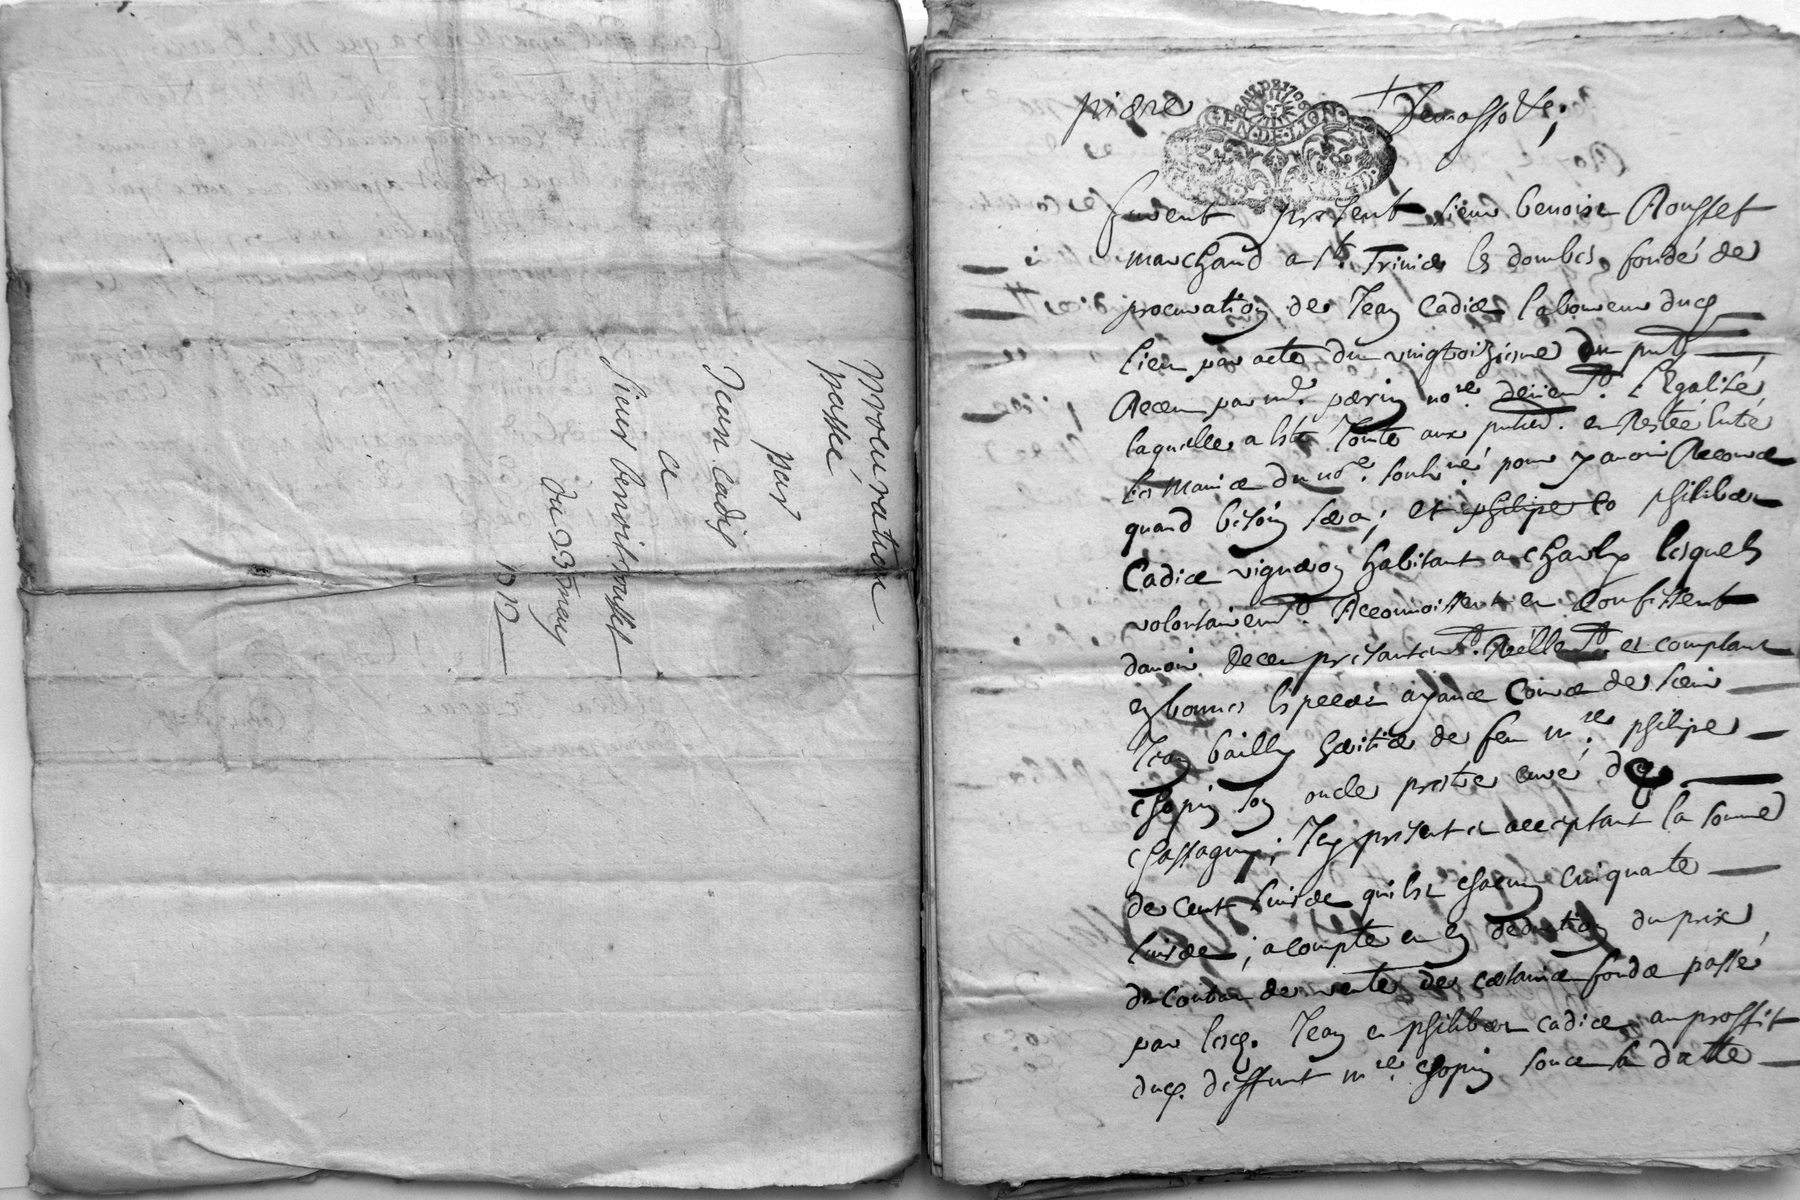 procuration
passé
par
Jean Cadiz
a
Sieur benoit rousset
du 23 may
1712
GEN · DE · LION
furent present sieur benoist Rousset
marchand a st. Trivier Es dombes fondé de
procuration de Jean Cadier laboureur dud
lieu par acte du vingttroisiesme du pnt
Receu par me. perrin nore. deuem.t Legalisé,
laquelle a esté Jointe aux pntes. et Restée entre
les mains du nore. soubné. pour y avoir Recours
quand besoin sera; et philipe Co philiber
Cadier vigneron habitant a charly lesquels
volontairemt. Reconnoissent et confessent
davoir Receu presantemt. Reellemt. et comptant
en bonnes especes ayance Cours de sieur
Jean bailly heritier de feu mre. philipe
chopin son oncle prestre curé de
chassagny; Icy present et acceptant la somme
de cent livres qui est chacun cinquante
livres; acompte et en deduction du prix
du contrat de vente de certains fonds passé
par lesd. Jean et philiber cadier au proffit
dud. deffunt mre. chopin sous sa datte